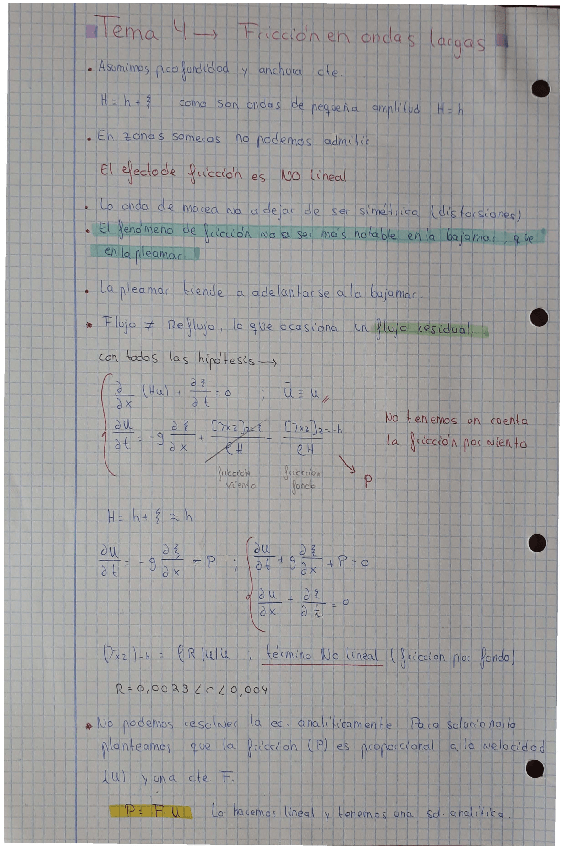 Tema 4 → Fricción en ondas largas
• Asumimos profundidad y anchura cte.
H = h + ξ como son ondas de pequeña amplitud H = h
• En zonas someras no podemos admitir
El efecto de fricción es NO lineal
• La onda de marea va a dejar de ser simétrica (distorsiones)
• El fenómeno de fricción va a ser más notable en la bajamar que
en la pleamar.
• La pleamar tiende a adelantarse a la bajamar.
• Flujo ≠ Reflujo, lo que ocasiona un flujo residual.
con todas las hipótesis →
∂/∂x (Hu) + ∂ξ/∂t = 0 ; ū ≡ u
∂u/∂t = -g ∂ξ/∂x + [τxz]z=ξ/ρH - [τxz]z=-h/ρH
fricción viento
fricción fondo
P
No tenemos en cuenta
la fricción por viento
H = h + ξ ≈ h
∂u/∂t = -g ∂ξ/∂x - P ; ∂u/∂t + g ∂ξ/∂x + P = 0
(τxz)-h = ρR|u|u ; término No lineal (fricción por fondo)
R = 0,0023 < r < 0,004
• No podemos resolver la ec. analíticamente. Para solucionarlo
planteamos que la fricción (P) es proporcional a la velocidad
(u) y una cte F.
P = F u lo hacemos lineal y tenemos una sol. analítica.